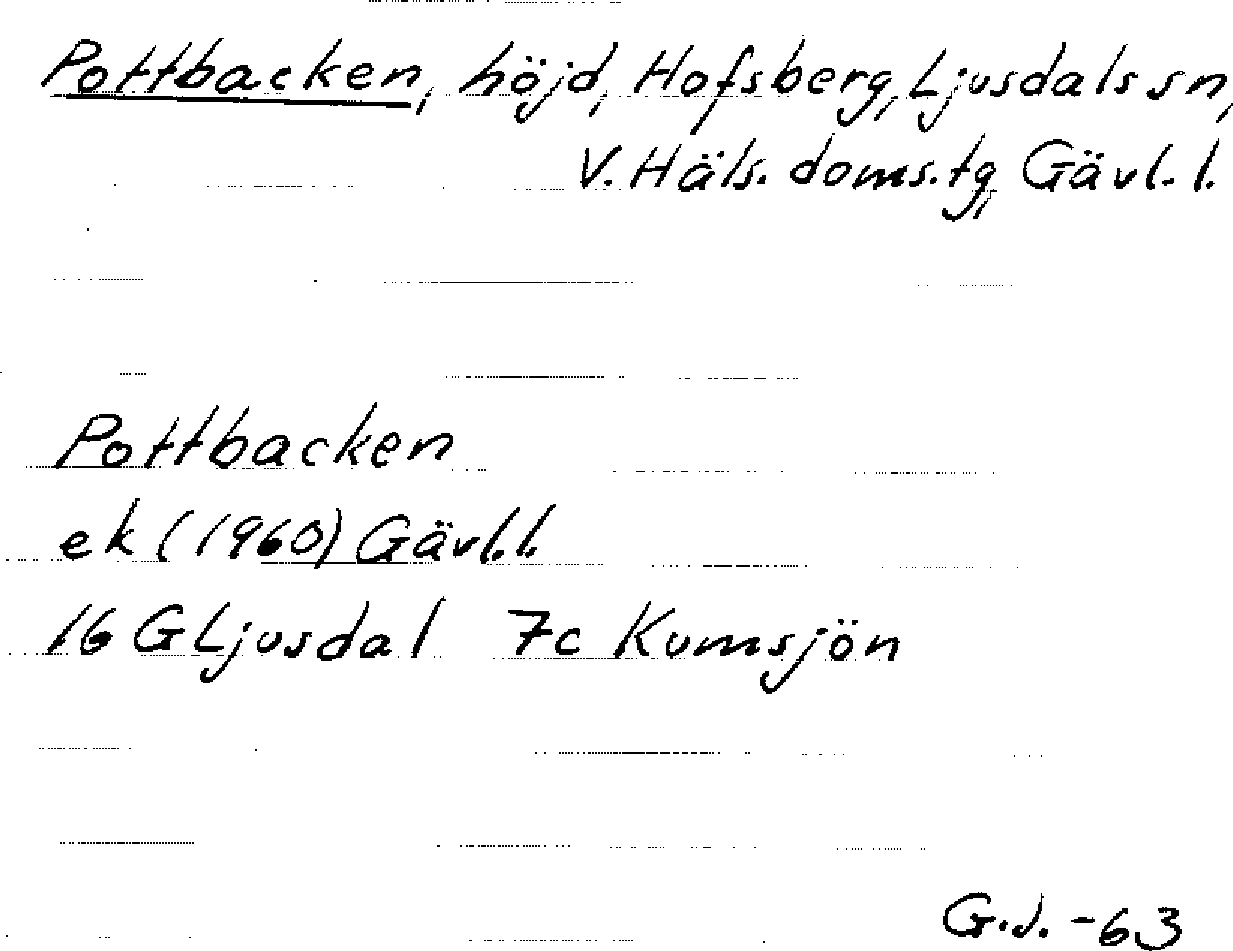 Pottbacken, höjd, Hofsberg, Ljusdals sn,
V. Häls. doms.tg, Gävl. l.
Pottbacken
ek (1960) Gävl. l.
16 G Ljusdal 7c Kumsjön
G.J. -63